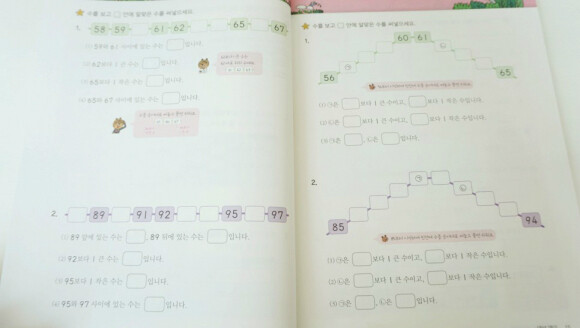 수를 보고 □ 안에 알맞은 수를 써넣으세요.
1. 58 59 61 62 65 67
사이에 있는 수는 □입니다.
(2) 62보다 1 큰 수는 □입니다.
(3) 65보다 1 작은 수는 □입니다.
(4) 65와 67 사이에 있는 수는 □입니다.
2. 89 91 92 95 97
(1) 89 앞에 있는 수는 □, 89 뒤에 있는 수는 □입니다.
(2) 92보다 1 큰 수는 □입니다.
(3) 95보다 1 작은 수는 □입니다.
(4) 95와 97 사이에 있는 수는 □입니다.
수를 보고 □ 안에 알맞은 수를 써넣으세요.
1.
60 61
㉠ ㉡
56 65
(1) ㉠은 □보다 1 큰 수이고, □보다 1 작은 수입니다.
(2) ㉡은 □보다 1 큰 수이고, □보다 1 작은 수입니다.
(3) ㉠은 □, ㉡은 □입니다.
2.
㉠ ㉡
85 94
(1) ㉠은 □보다 1 큰 수이고, □보다 1 작은 수입니다.
(2) ㉡은 □보다 1 큰 수이고, □보다 1 작은 수입니다.
(3) ㉠은 □, ㉡은 □입니다.